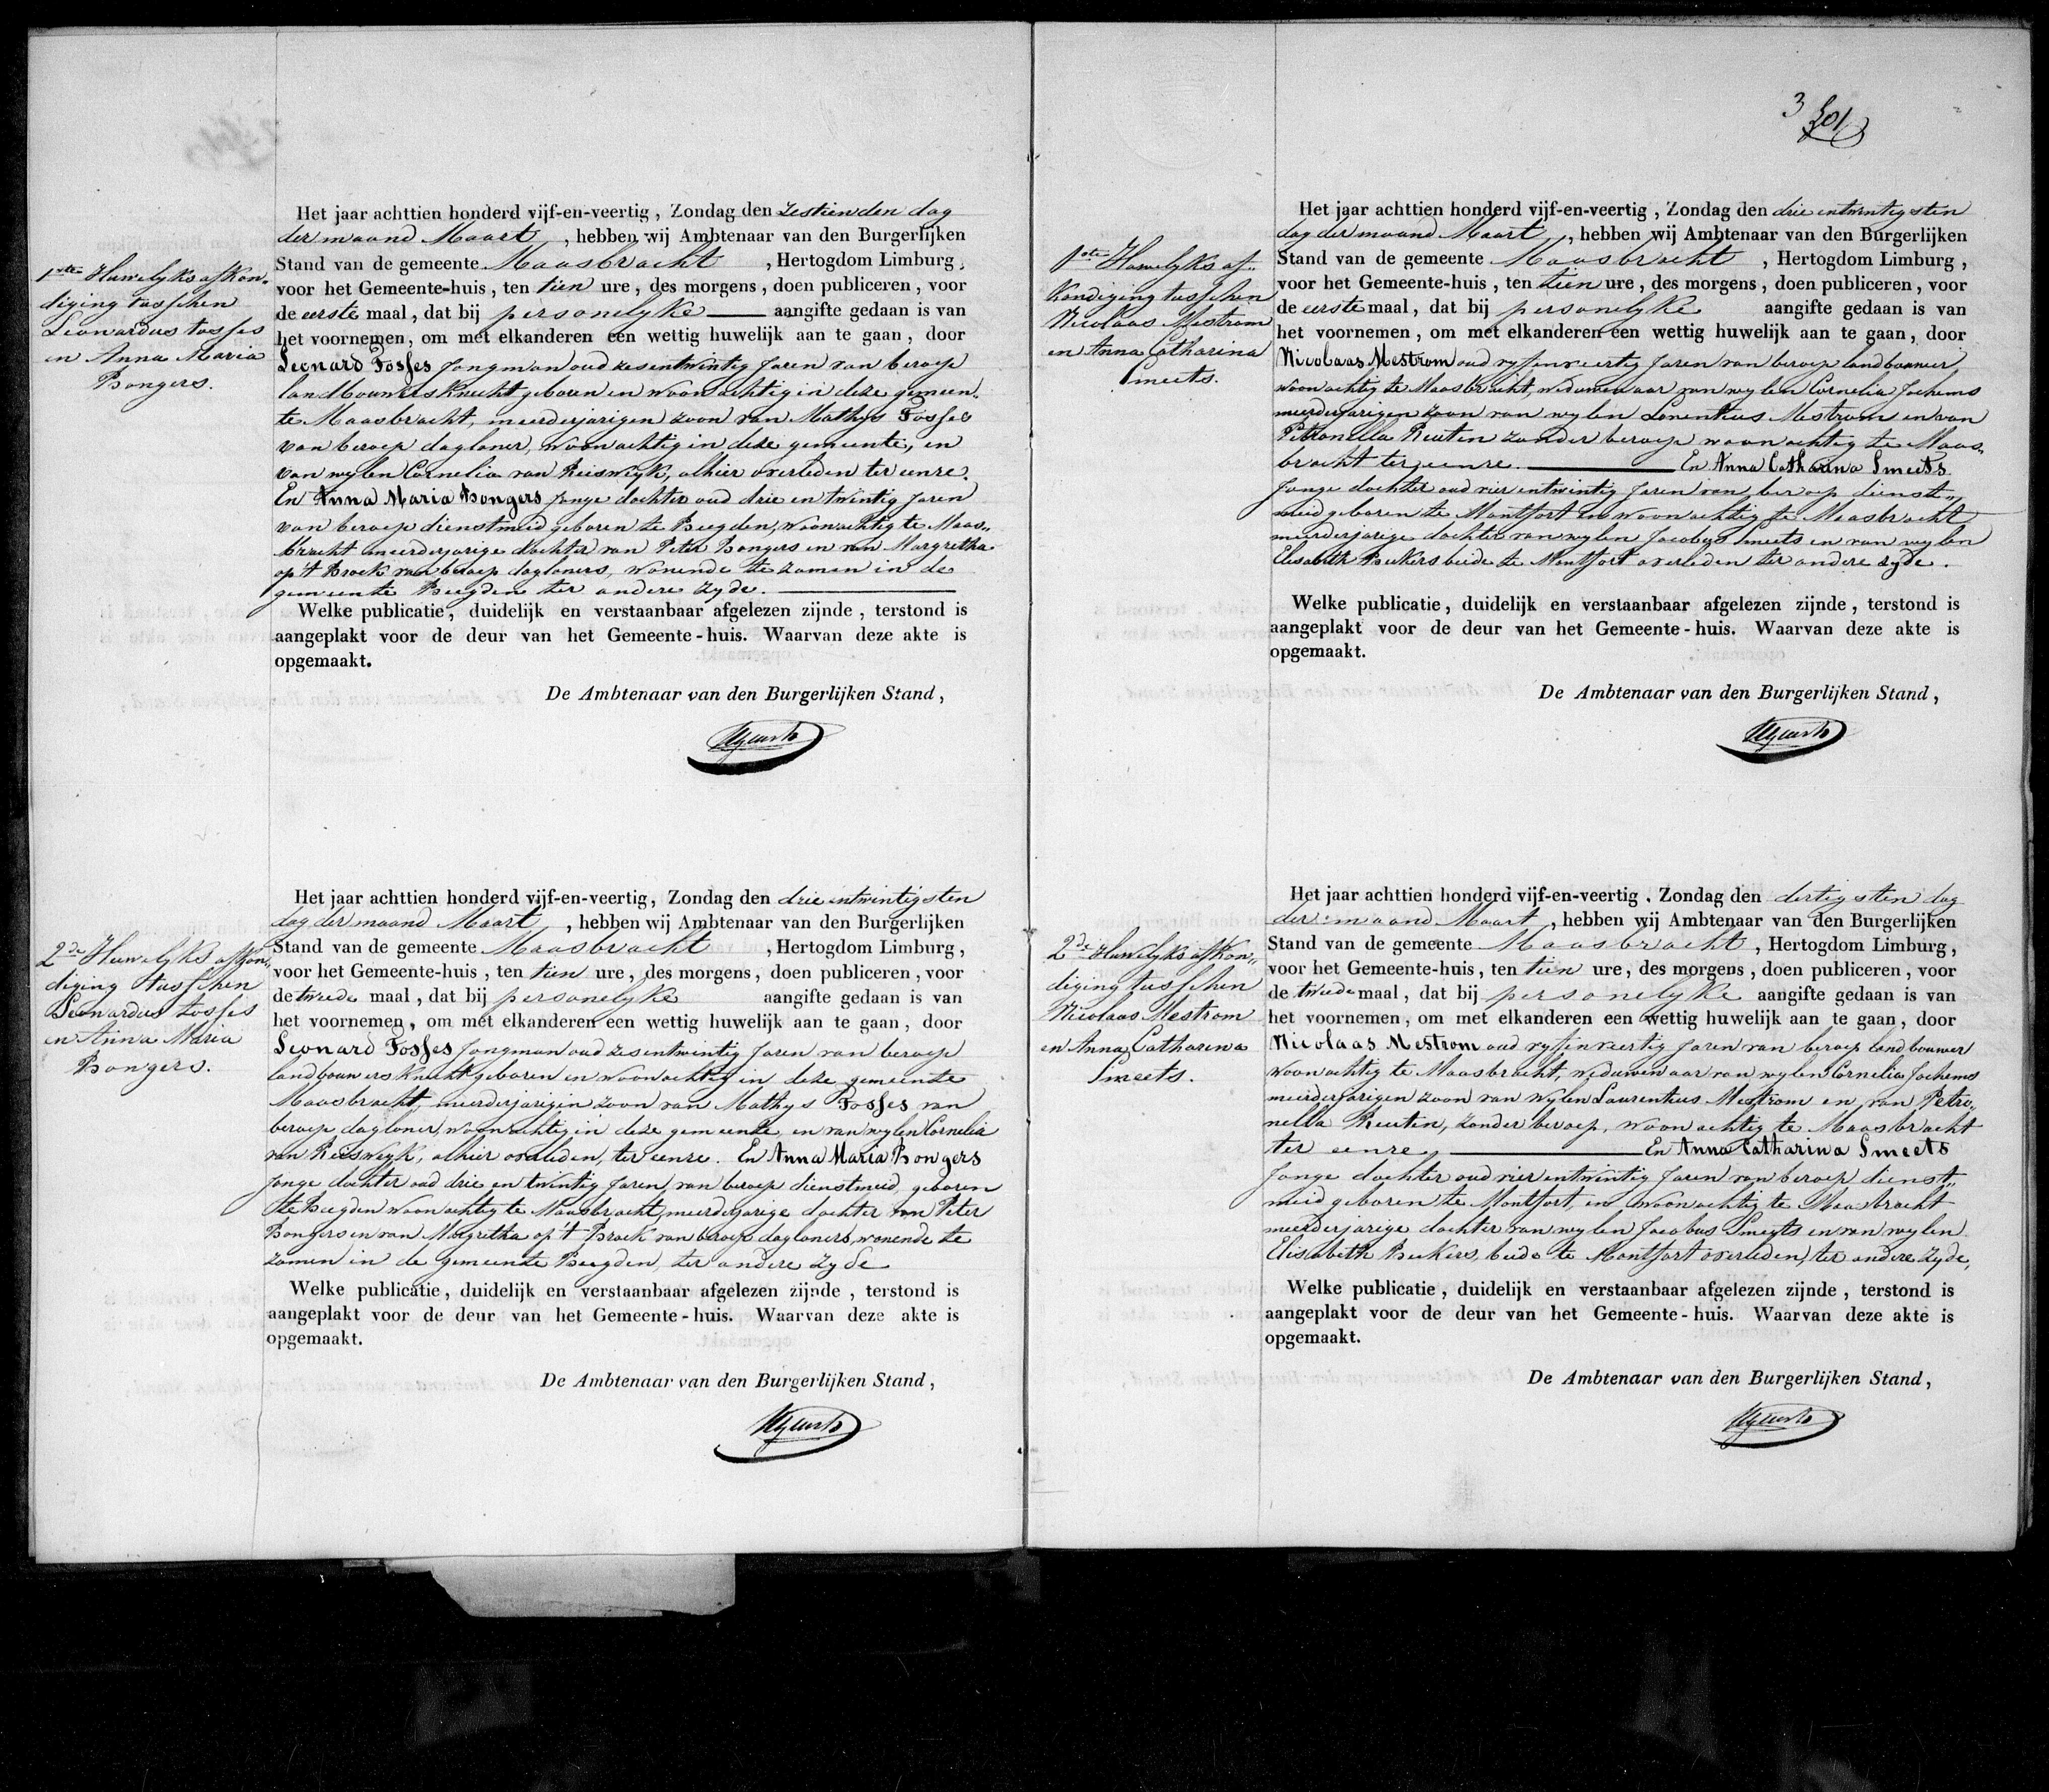 1ste Huwelyks afkon„
diging tusschen
Leonardus Fosses
en Anna Maria
Bongers.
Het jaar achttien honderd vijf-en-veertig, Zondag den zestienden dag
der maand Maart, hebben wij Ambtenaar van den Burgerlijken
Stand van de gemeente Maasbracht, Hertogdom Limburg,
voor het Gemeente-huis, ten tien ure, des morgens, doen publiceren, voor
de eerste maal, dat bij personelyke aangifte gedaan is van
het voornemen, om met elkanderen een wettig huwelijk aan te gaan, door
Leonard Fosses Jongman oud zesentwintig Jaren van beroep
landbouwersknecht geboren en woonachtig in deze gemeen„
te Maasbracht, meerderjarigen zoon van Mathys Fosses
van beroep dagloner, woonachtig in deze gemeente, en
van wylen Cornelia van Reiswyk, alhier overleden ter eenre.
En Anna Maria Bongers Jonge dochter oud drie en twintig Jaren
van beroep dienstmeid geboren te Beegden, woonachtig te Maas„
bracht meerderjarige dochter van Peter Bongers en van Margretha
op 't Broek van beroep dagloners, wonende te zamen in de
gemeente Beegden ter andere zyde.
Welke publicatie, duidelijk en verstaanbaar afgelezen zijnde, terstond is
aangeplakt voor de deur van het Gemeente-huis. Waarvan deze akte is
opgemaakt.
De Ambtenaar van den Burgerlijken Stand,
2de Huwelyks afkon„
diging tusschen
Leonardus Fosses
en Anna Maria
Bongers.
Het jaar achttien honderd vijf-en-veertig, Zondag den drie entwintigsten
dag der maand Maart, hebben wij Ambtenaar van den Burgerlijken
Stand van de gemeente Maasbracht, Hertogdom Limburg,
voor het Gemeente-huis, ten tien ure, des morgens, doen publiceren, voor
de tweede maal, dat bij personelyke aangifte gedaan is van
het voornemen, om met elkanderen een wettig huwelijk aan te gaan, door
Leonard Fosses Jongman oud zesentwintig Jaren van beroep
landbouwersknecht geboren en woonachtig in deze gemeente
Maasbracht, meerderjarigin zoon van Mathys Fosses van
beroep dagloner, woonachtig in deze gemeente, en van wylen Cornelia
van Reisweyk, alhier overleden, ter eenre. En Anna Maria Bongers
Jonge dochter oud drie en twintig Jaren, van beroep dienstmeid, geboren
te Beegden woonachtig te Maasbracht, meerderjarige dochter van Peter
Bongers en van Margretha op 't Broek van beroep dagloners, wonende te
zamen in de gemeente Beegden, ter andere zyde
Welke publicatie, duidelijk en verstaanbaar afgelezen zijnde, terstond is
aangeplakt voor de deur van het Gemeente-huis. Waarvan deze akte is
opgemaakt.
De Ambtenaar van den Burgerlijken Stand,
3
1ste Huwelyks af„
kondiging tusschen
Nicolaas Mestrom
en Anna Catharina
Smeets.
Het jaar achttien honderd vijf-en-veertig, Zondag den drie entwintigsten
dag der maand Maart, hebben wij Ambtenaar van den Burgerlijken
Stand van de gemeente Maasbracht, Hertogdom Limburg,
voor het Gemeente-huis, ten tien ure, des morgens, doen publiceren, voor
de eerste maal, dat bij personelyke aangifte gedaan is van
het voornemen, om met elkanderen een wettig huwelijk aan te gaan, door
Nicolaas Mestrom oud vyfenveertig Jaren van beroep landbouwer,
woonachtig te Maasbracht, weduwenaar van wylen Cornelia Jochems
meerderjarigen zoon van wylen Laurentius Mestrom en van
Petronella Reuten zonder beroep woonachtig te Maas„
bracht ter eenre. En Anna Catharina Smeets
Jonge dochter oud vier entwintig Jaren van beroep dienst„
meid geboren te Montfort en woonachtig te Maasbracht
meerderjarige dochter van wylen Jacobus Smeets en van wylen
Elisabeth Beekers beide te Montfort overleden ter andere zyde.
Welke publicatie, duidelijk en verstaanbaar afgelezen zijnde, terstond is
aangeplakt voor de deur van het Gemeente-huis. Waarvan deze akte is
opgemaakt.
De Ambtenaar van den Burgerlijken Stand,
2de Huwelyks afkon„
diging tusschen
Nicolaas Mestrom
en Anna Catharina
Smeets.
Het jaar achttien honderd vijf-en-veertig, Zondag den dertigsten dag
der maand Maart, hebben wij Ambtenaar van den Burgerlijken
Stand van de gemeente Maasbracht, Hertogdom Limburg,
voor het Gemeente-huis, ten tien ure, des morgens, doen publiceren, voor
de tweede maal, dat bij personelyke aangifte gedaan is van
het voornemen, om met elkanderen een wettig huwelijk aan te gaan, door
Nicolaas Mestrom oud vyfenveertig Jaren van beroep landbouwer
woonachtig te Maasbracht, weduwenaar van wylen Cornelia Jochems
meerderjarigen zoon van wylen Laurentius Mestrom en van Petro„
nella Reuten, zonder beroep, woonachtig te Maasbracht
ter eenre, En Anna Catharina Smeets
Jonge dochter oud vier entwintig Jaren van beroep dienst„
meid geboren te Montfort, en woonachtig te Maasbracht
meerderjarige dochter van wylen Jacobus Smeets en van wylen
Elisabeth Beekers, beide te Montfort overleden, ter andere zyde,
Welke publicatie, duidelijk en verstaanbaar afgelezen zijnde, terstond is
aangeplakt voor de deur van het Gemeente-huis. Waarvan deze akte is
opgemaakt.
De Ambtenaar van den Burgerlijken Stand,